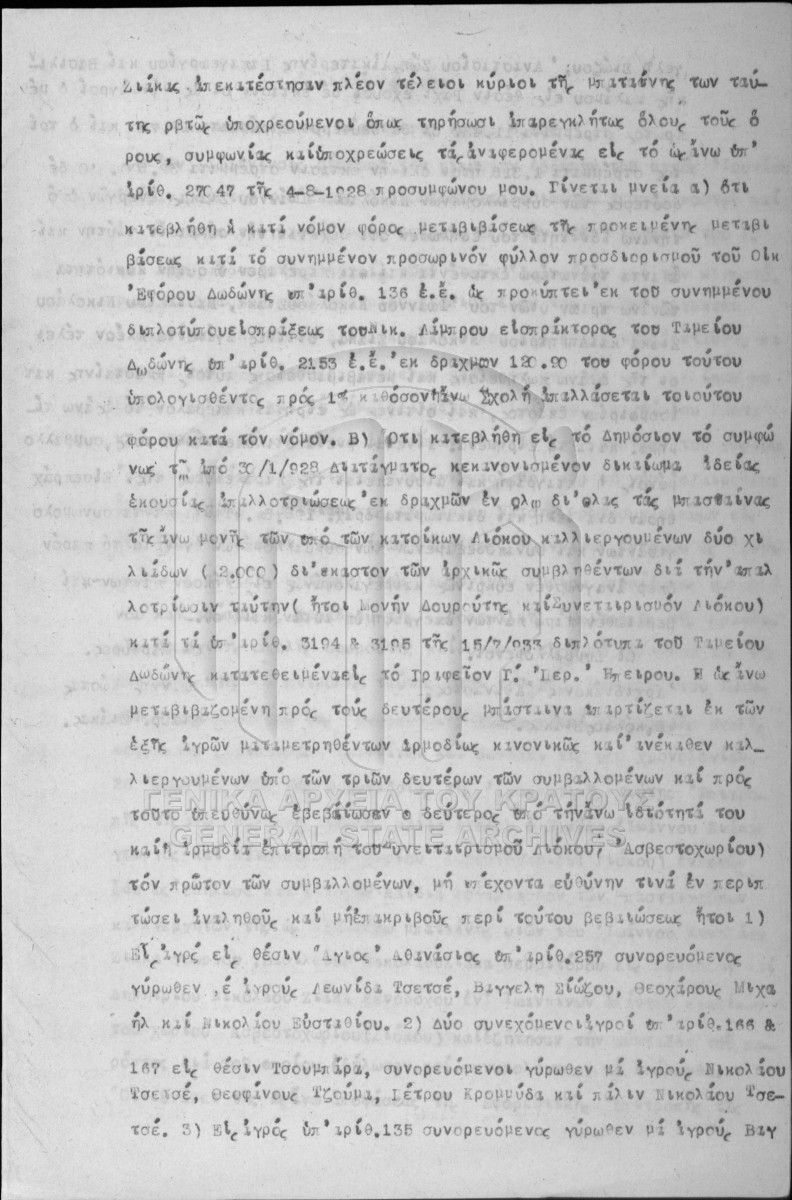 Ζιάκας ἀπεκατέστησαν πλέον τέλειοι κύριοι τῆς μπαταίνης των ταύ-
της ρβτῶς ὑποχρεούμενοι ὅπως τηρήσωσι ἀπαρεγκλήτως ὅλους τοὺς ὅ
ρους, συμφωνίας καίὑποχρεώσεις τάς ἀναφερομένας εἰς τό ὡς ἄνω ὑπ'
ἀρίθ. 27047 τῆς 4-8-1928 προσυμφώνου μου. Γίνεται μνεία α) ὅτι
κατεβλήθη ἡ κατά νόμον φόρος μεταβιβάσεως τῆς προκειμένης μεταβι
βάσεως κατά τό συνημμένον προσωρινόν φύλλον προσδιορισμοῦ τοῦ Οἰκ
Ἐφόρου Δωδώνης ὑπ'ἀρίθ. 136 ἐ.ἔ. ὡς προκύπτει'εκ τοῦ συνημμένου
διπλοτύπουεἰσπράξεως τουΝικ. Λάμπρου εἰσπράκτορος του Ταμείου
Δωδώνης ὑπ'ἀρίθ. 2153 ἐ.ἔ.'εκ δραχμων 120.90 του φόρου τούτου
ὑπολογισθέντος πρός 1% καθόσον ἡἄνω Σχολή ἀπαλλάσεται τοιούτου
φόρου κατά τόν νόμον. Β) Οτι κατεβλήθη εἰς τό Δημόσιον τό συμφώ
νως τῷ ἀπό 30/1/928 Διατάγματος κεκανονισμένον δικαίωμα ἀδείας
ἑκουσίας ἀπαλλοτριώσεως'εκ δραχμῶν ἐν ολῳ δι'ολας τάς μπασταίνας
τῆςἄνω μονῆς τῶν ὑπό τῶν κατοίκων Λιόκου καλλιεργουμένων δύο χι
λιάδων (2.000) δι'εκαστον τῶν ἀρχικῶς συμβληθέντων διά τήν'απαλ
λοτρίωσιν ταύτην( ἤτοι Μονήν Δουρούτης καίΣυνεταιρισμόν Λιόκου)
κατά τά ὑπ'ἀρίθ. 3194 & 3195 τῆς 15/7/933 διπλότυπα τοῦ Ταμείου
Δωδώνης κατατεθειμέναεἰς τό Γραφεῖον Γ. Ἱερ. Ἠπειρου. Η ὡς ἄνω
μεταβιβαζομένη πρός τούς δευτέρους μπάσταινα ἀπαρτίζεται ἐκ τῶν
ἑξῆς ἀγρῶν καταμετρηθέντων ἁρμοδίως κανονικῶς καί'ανέκαθεν καλ_
λιεργουμένων ὑπό τῶν τριῶν δευτέρων τῶν συμβαλλομένων καί πρός
τοῦτο ὑπευθύνως ἐβεβαίωσεν ο δεύτερος ὑπό τήνἄνω ἰδιότητά του
καίἡ ἁρμοδία ἐπιτροπή τουΣυνειταιρισμοῦ Λιόκου, Ἀσβεστοχωρίου)
τόν πρῶτον τῶν συμβαλλομένων, μή ὑπέχοντα εὐθύνην τινά ἐν περιπ
τώσει ἀναληθοῦς καί μήἐπακριβοῦς περί τούτου βεβαιώσεως ἤτοι 1)
Εἷς ἀγρός εἰς θέσιν "Αγιος' Ἀθανάσιος ὑπ'ἀρίθ.257 συνορευόμενος
γύρωθεν μέ ἀγρούς Λεωνίδα Τσετσέ, Βαγγελη Σιώζου, Θεοχάρους Μιχα
ήλ καί Νικολάου Εὐσταθίου. 2) Δύο συνεχόμενοιἀγροί ὑπ'ἀρίθ.166 &
167 εἰς θέσιν Τσουμπάρα, συνορευόμενοι γύρωθεν μέ ἀγρούς Νικολάου
Τσετσέ, Θεοφάνους Τζούμα, Πέτρου Κρομμύδα καί πάλιν Νικολάου Τσε-
τσέ. 3) Εἷς ἀγρός ὑπ'ἀρίθ.135 συνορευόμενος γύρωθεν μέ ἀγρούς Βαγ
ΓΕΝΙΚΑ ΑΡΧΕΙΑ ΤΟΥ ΚΡΑΤΟΥΣ
GENERAL STATE ARCHIVES